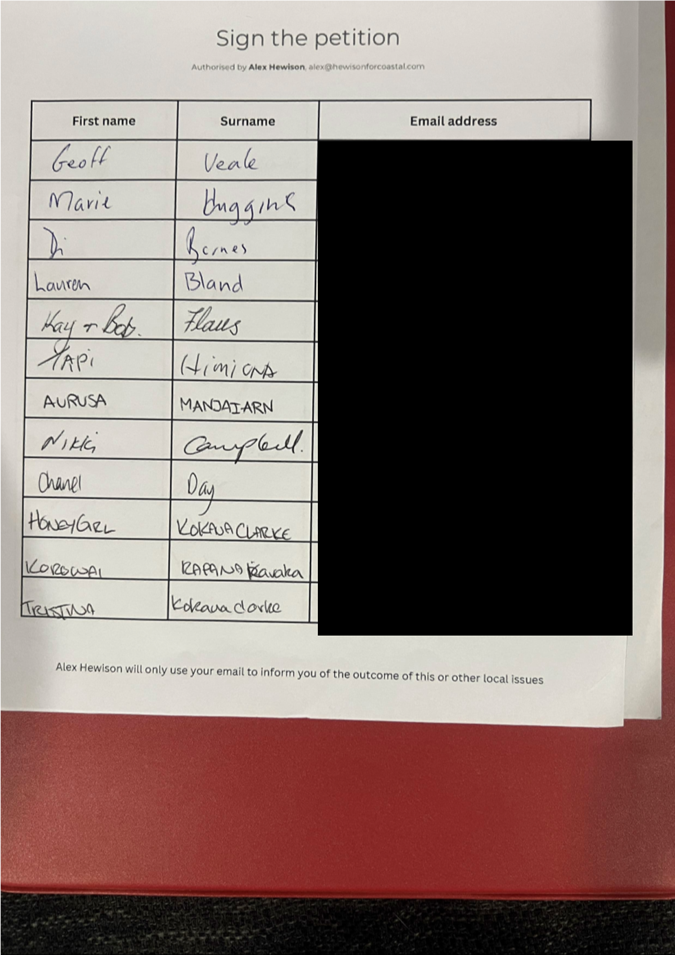 Sign the petition
Authorised by Alex Hewison, alex@hewisonforcoastal.com
First name Surname Email address
Geoff Veale
Marie Huggins
Di Barnes
Lauren Bland
Kay + Bob. Flaus
TAPI Himiona
AURUSA MANJAIARN
Nikki Campbell.
Chanel Day
HONEYGIRL KOKAUA CLARKE
KOROWAI
TRISTINA Kokaua clarke
Alex Hewison will only use your email to inform you of the outcome of this or other local issues